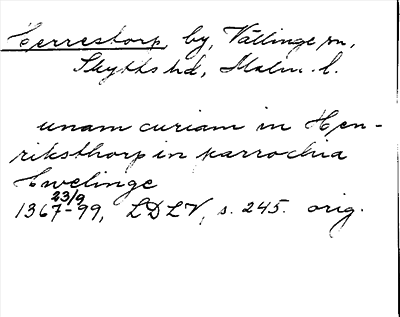 Herrestorp by, Vällinge sn,
Skytts hd, Malm. l.
unam curiam in Hen-
riksthorp in parrochia
Hwelinge
23/9
1367-99, LDLV, s. 245. orig.